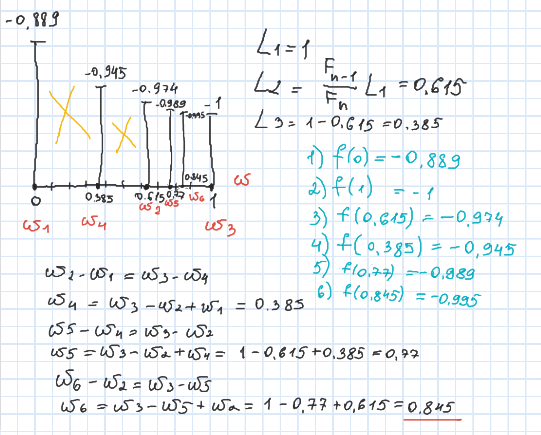 -0,889
-0,945
-0.974
-0.989
-0.995
-1
0
0.385
0.615
0.77
0.845
1
ω
ω1
ω4
ω2
ω5
ω6
ω3
L1 = 1
L2 = Fn-1/Fn L1 = 0,615
L3 = 1-0.615 = 0.385
1) f(0) = -0,889
2) f(1) = -1
3) f(0,615) = -0,974
4) f(0,385) = -0,945
5) f(0,77) = -0,989
6) f(0,845) = -0,995
ω2 - ω1 = ω3 - ω4
ω4 = ω3 - ω2 + ω1 = 0.385
ω5 - ω4 = ω3 - ω2
ω5 = ω3 - ω2 + ω4 = 1 - 0,615 + 0,385 = 0,77
ω6 - ω2 = ω3 - ω5
ω6 = ω3 - ω5 + ω2 = 1 - 0,77 + 0,615 = 0.845